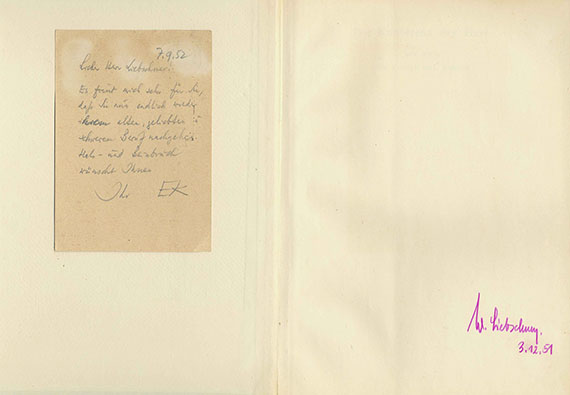 7.9.52
Lieber Herr Liebschner,
Es freut mich sehr für Sie,
daß Sie nun endlich wieder
Ihrem alten, geliebten u
schweren Beruf nachgehen
Hals- und Beinbruch
wünscht Ihnen
Ihr EK
W. Liebschner.
3.12.51